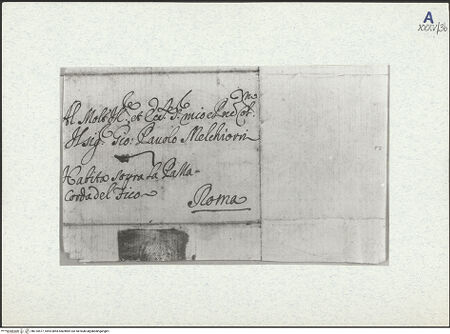 A
XXXV/36
Al Molt Ill.re et Ecc.te S.r mio et Pad.ne Col.mo
Il sig.r Gio: Pauolo Melchiorri
Habita sopra la Palla
Corda del Fico
Roma